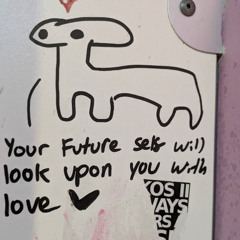 Your Future self will
look upon you with
love
OS II
WAYS
RS